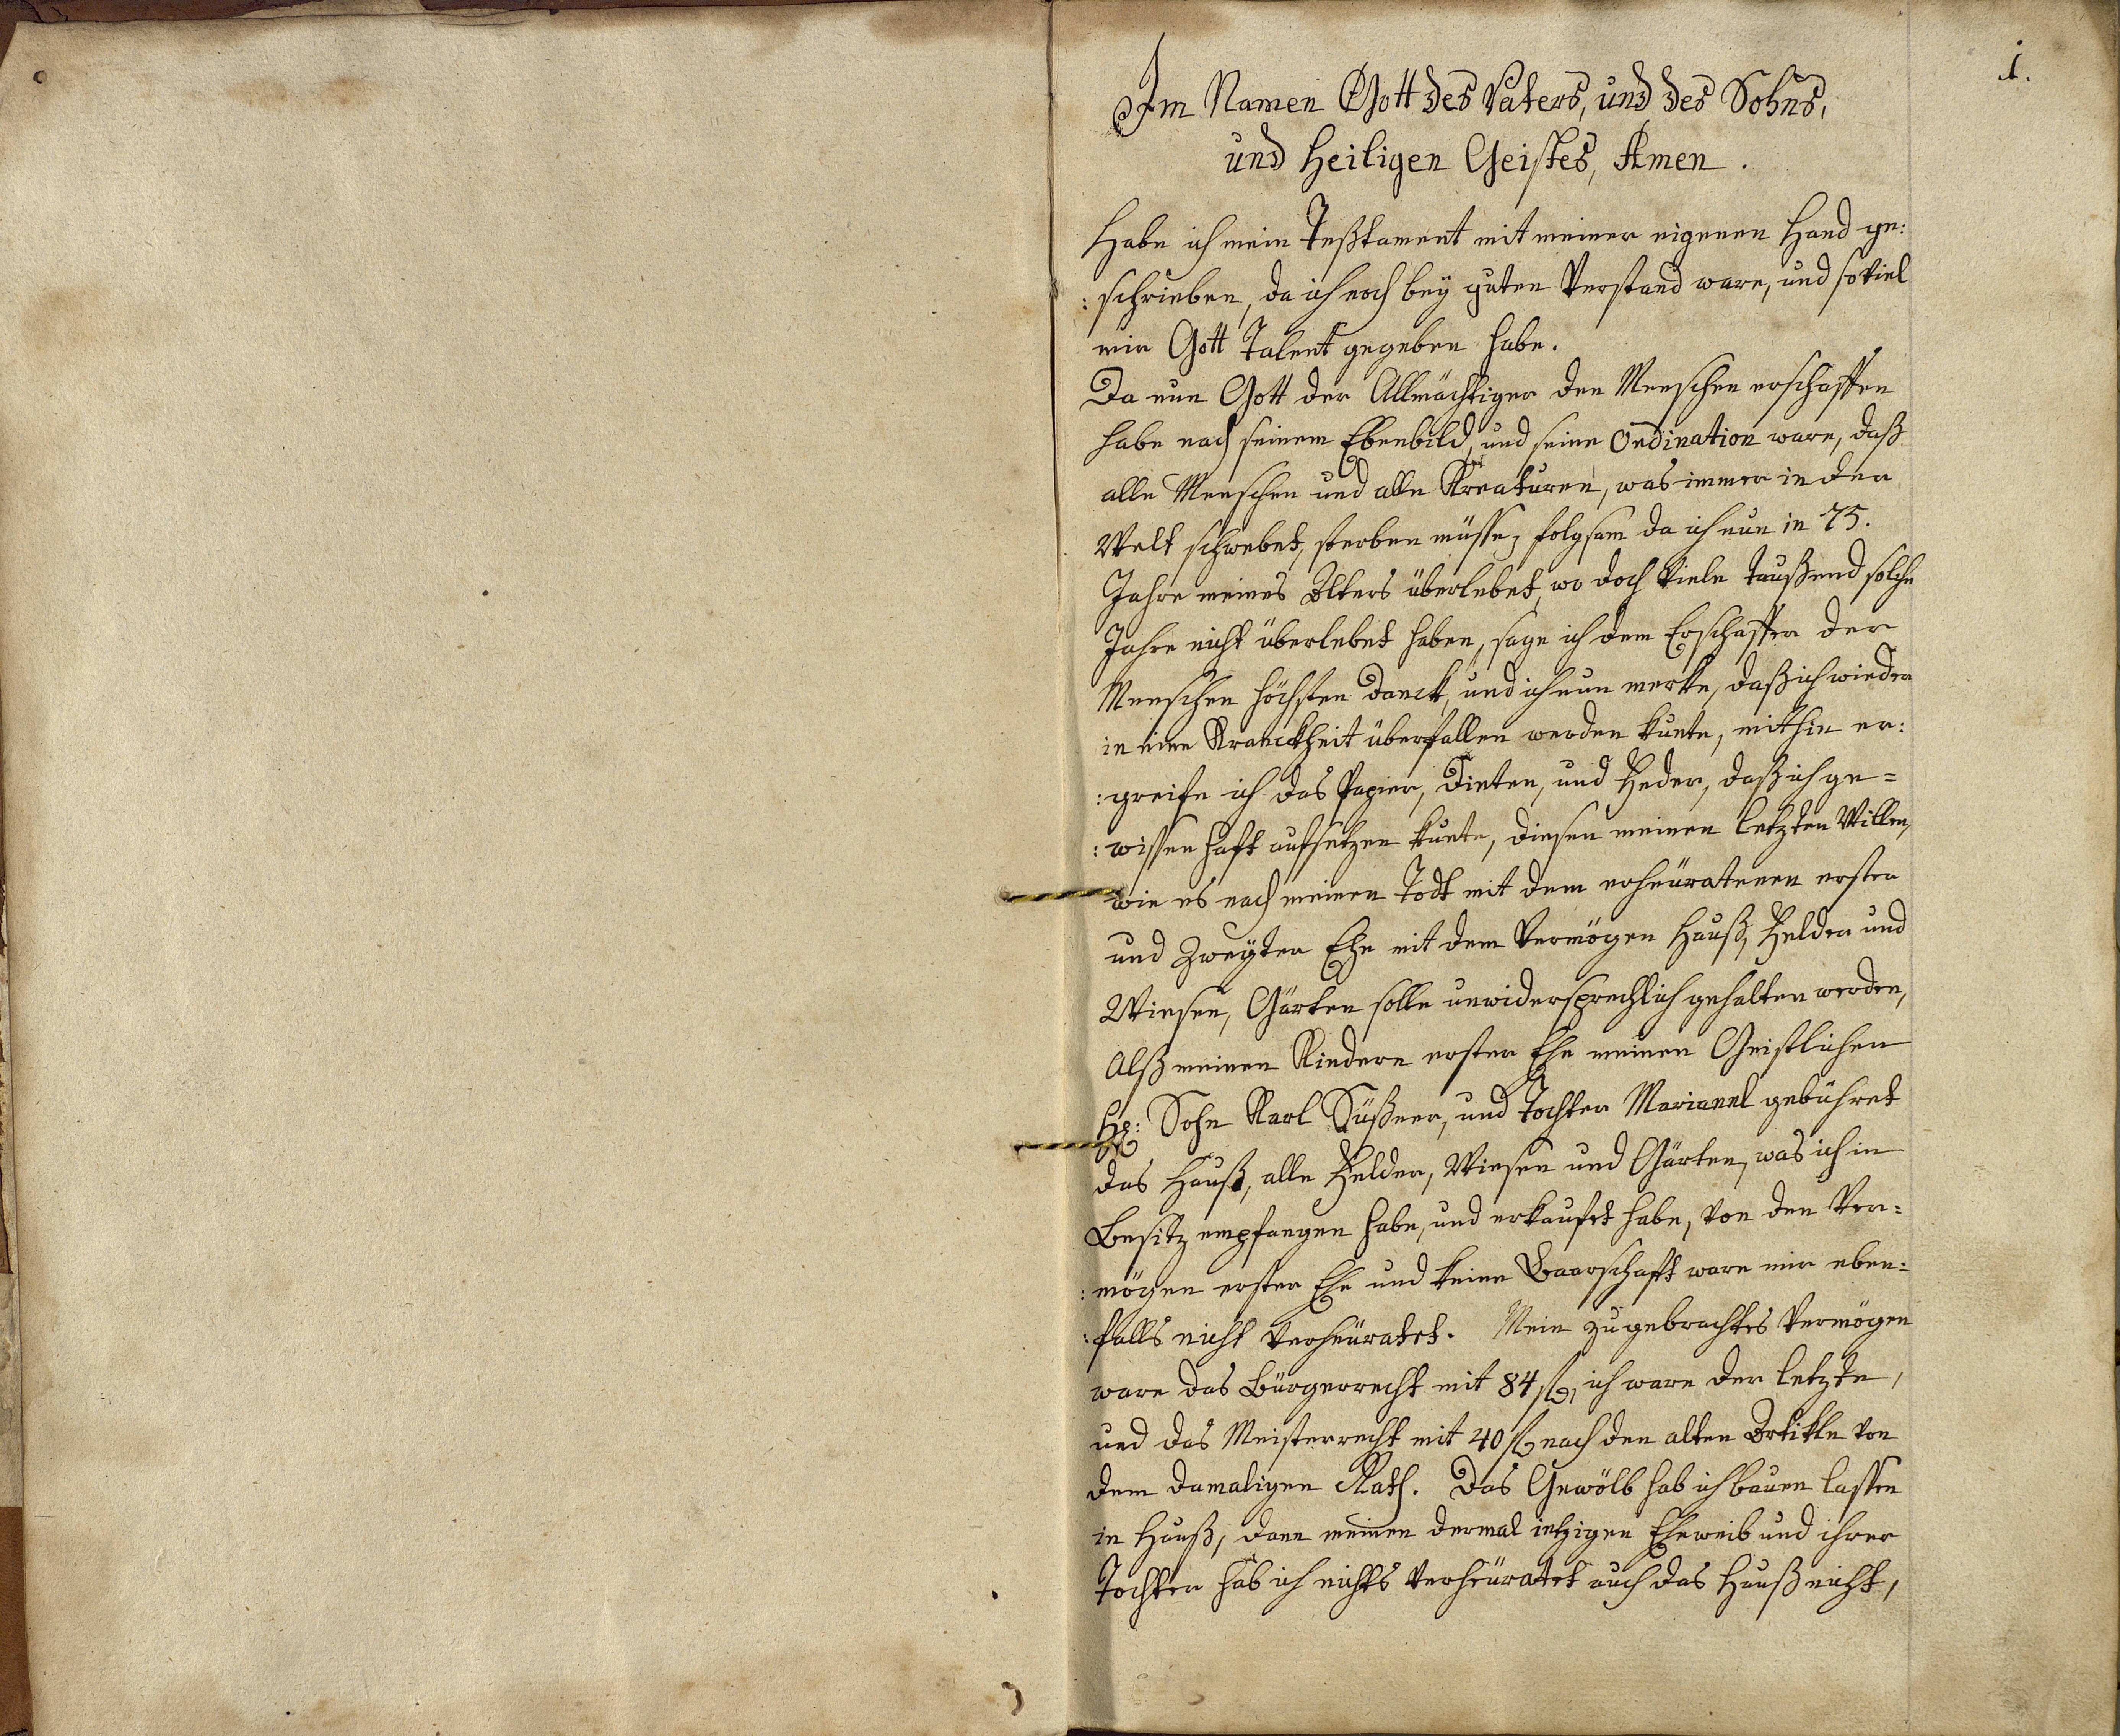 1.
Im Namen Gott des Vaters, und des Sohns,
und Heiligen Geistes, Amen.
Habe ich mein Teßtament mit meiner eigenen Hand ge:
:schrieben, da ich noch bey guten Verstand ware, und soviel
mir Gott Talent gegeben habe.
Da nun Gott der Allmächtiger den Menschen erschaffen
habe nach seinem Ebenbild, und seine Ordination ware, daß
alle Menschen und alle Kreaturen, was immer in der
Welt schwebet, sterben müsse, folgsam da ich nun in 75.
Jahre meines Alters überlebet, wo doch viele taußend solche
Jahre nicht überlebet haben, sage ich dem Erschaffer der
Menschen höchsten Danck, und ich nun merke, daß ich wieder
in eine Kranckheit überfallen werden kunte, mithin er:
:greife ich das Papier, Dinten, und Feder, daß ich ge=
:wissenhaft aufsetzen kunte, diesen meinen letzten Willen,
wie es nach meinen Todt mit dem erheüratenen erster
und Zweyter Ehe mit dem Vermögen Hauß, Felder und
Wiesen, Gärten solle unwidersprechlich gehalten werden,
Alß meinen Kindern erster Ehe meinen Geistlichen
H: Sohn Karl Süßner, und Tochter Mariannl gebühret
das Hauß, alle Felder, Wiesen und Gärten, was ich in
Besitz empfangen habe, und erkaufet habe, von den Ver=
:mögen erster Ehe und keine Baarschafft ware mir eben=
:falls nicht verheüratet. Mein zugebrachtes Vermögen
ware das Bürgerrecht mit 84 f, ich ware der letzte,
und das Meisterrecht mit 40 f nach den alten Artikle von
dem damaligen Rath. Das Gewölb hab ich bauen lassen
in Hauß, dann meinen dermal ietzigen Eheweib und ihrer
Tochter hab ich nichts verheüratet auch das Hauß nicht,